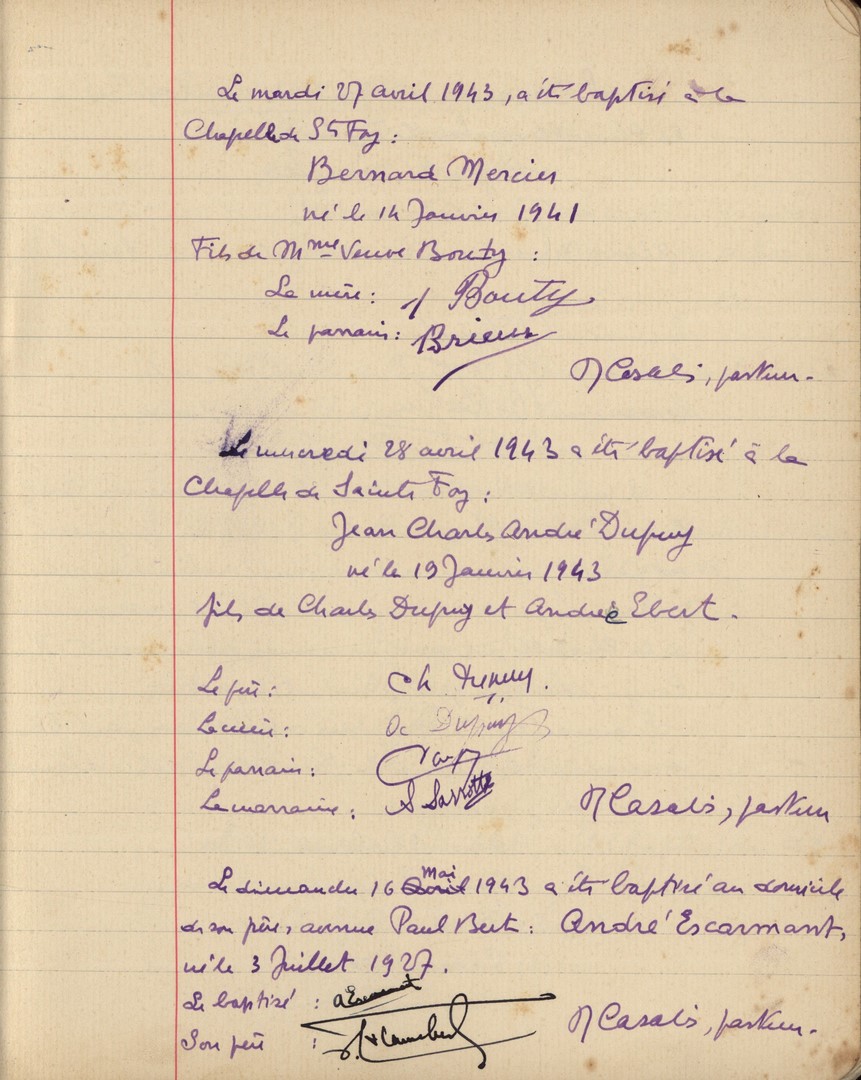 Le mardi 27 avril 1943, a été baptisé à la
Chapelle de Ste Foy :
Bernard Mercier
né le 14 Janvier 1941
Fils de Mme Veuve Bouty :
La mère : Bouty
Le parrain : Brieux
Casalis, pasteur.
Le mercredi 28 avril 1943 a été baptisé à la
Chapelle de Sainte Foy :
Jean Charles André Dupuy
né le 19 Janvier 1943
fils de Charles Dupuy et Andrée Ebert.
Le père : Ch Dupuy.
La mère : Dupuy
Le parrain :
La marraine : S Sarrotte
Casalis, pasteur
Le dimanche 16 Mai 1943 a été baptisé au domicile
de son père, avenue Paul Bert : André Escarmant,
né le 3 Juillet 1927.
Le baptisé : a Escarmant
Son père :
Casalis, pasteur.